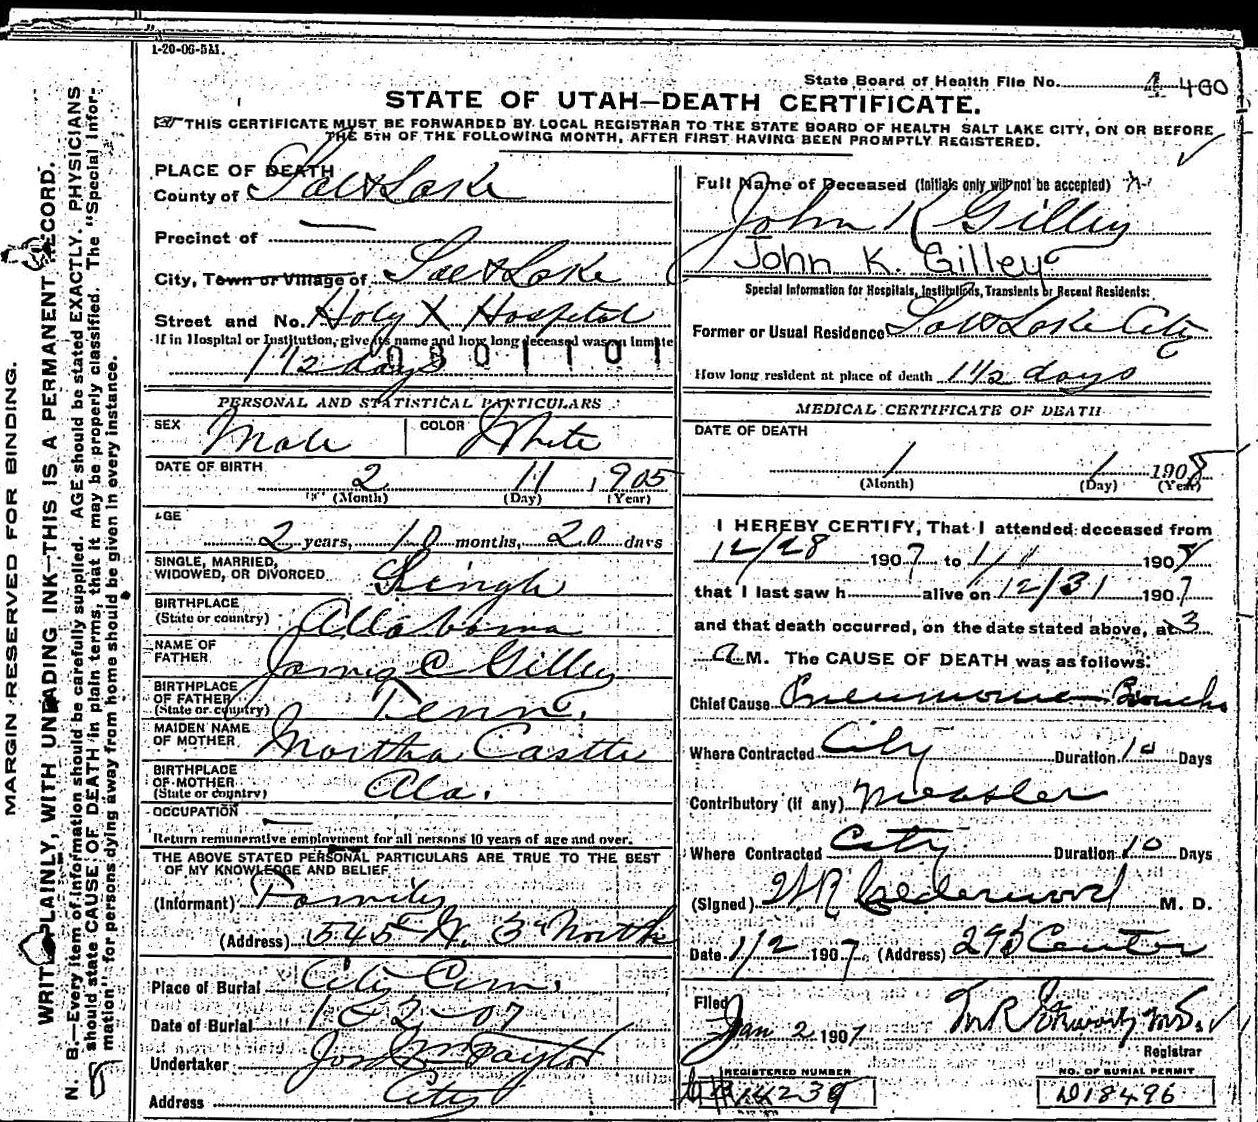 1-20-06-5M.
State Board of Health File No. 4 400
STATE OF UTAH—DEATH CERTIFICATE.
THIS CERTIFICATE MUST BE FORWARDED BY LOCAL REGISTRAR TO THE STATE BOARD OF HEALTH SALT LAKE CITY, ON OR BEFORE
THE 5TH OF THE FOLLOWING MONTH, AFTER FIRST HAVING BEEN PROMPTLY REGISTERED.
MARGIN RESERVED FOR BINDING.
WRITE PLAINLY, WITH UNFADING INK—THIS IS A PERMANENT RECORD.
N. B.—Every item of information should be carefully supplied. AGE should be stated EXACTLY. PHYSICIANS
should state CAUSE OF DEATH in plain terms, that it may be properly classified. The "Special Infor-
mation" for persons dying away from home should be given in every instance.
PLACE OF DEATH
County of Salt Lake
Precinct of —
City, Town or Village of Salt Lake
Street and No. Holy X Hospital
If in Hospital or Institution, give its name and how long deceased was an inmate
1 1/2 days 0801101
PERSONAL AND STATISTICAL PARTICULARS
SEX Male COLOR White
DATE OF BIRTH
2 11 1905
(Month) (Day) (Year)
AGE
2 years, 10 months, 20 days
SINGLE, MARRIED,
WIDOWED, OR DIVORCED Single
BIRTHPLACE
(State or country) Allabama
NAME OF
FATHER James C Gilley
BIRTHPLACE
OF FATHER
(State or country) Tenn.
MAIDEN NAME
OF MOTHER Martha
BIRTHPLACE
OF MOTHER
(State or country) Ala.
OCCUPATION —
Return remunerative employment for all persons 10 years of age and over.
THE ABOVE STATED PERSONAL PARTICULARS ARE TRUE TO THE BEST
OF MY KNOWLEDGE AND BELIEF
(Informant) Family
(Address) 545 W. 3d North
Place of Burial City Cem.
Date of Burial 1-2-07
Undertaker Jos Wm Taylor
Address City
Full Name of Deceased (Initials only will not be accepted)
John K Gilley
John K. Gilley
Special Information for Hospitals, Institutions, Transients or Recent Residents:
Former or Usual Residence Salt Lake City
How long resident at place of death 1 1/2 days
MEDICAL CERTIFICATE OF DEATH
DATE OF DEATH
1 1 1908
(Month) (Day) (Year)
I HEREBY CERTIFY, That I attended deceased from
12/28 1907 to 1/1 1908
that I last saw h alive on 12/31 1907
and that death occurred, on the date stated above, at 3
a M. The CAUSE OF DEATH was as follows:
Chief Cause Pneumonia Broncho
Where Contracted City Duration 10 Days
Contributory (if any) Measles
Where Contracted City Duration 10 Days
(Signed) W R Calderwood M. D.
Date 1/2 1907 (Address) Center
Filed
Jan 2 1907
Registrar
REGISTERED NUMBER
NO. OF BURIAL PERMIT
D18496